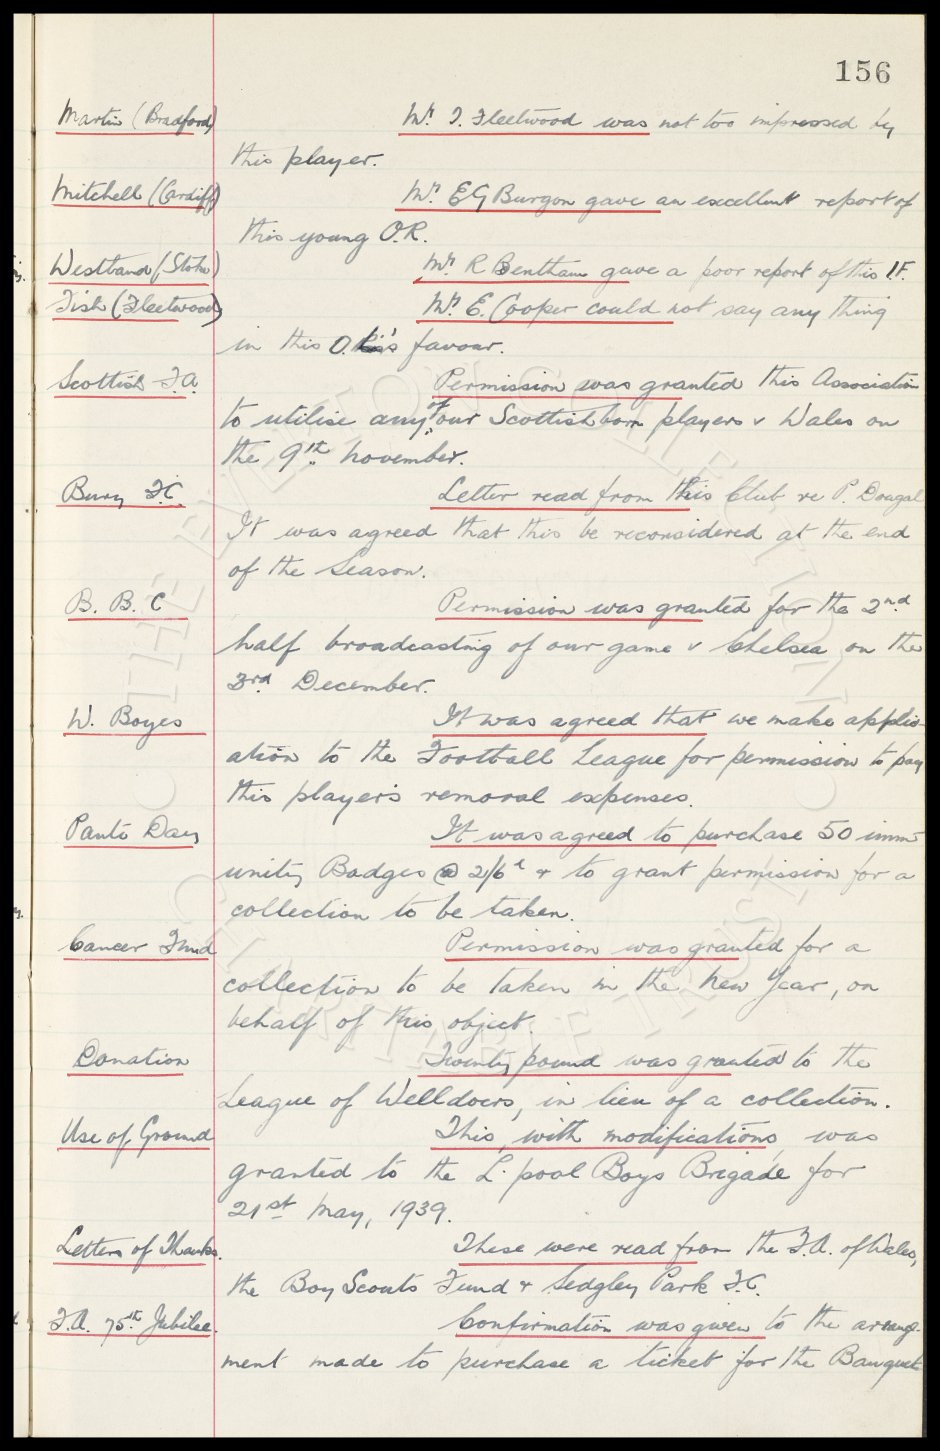 156
Martin (Bradford) Mr. T. Fleetwood was not too impressed by
this player.
Mitchell (Cardiff) Mr. E G Burgon gave an excellent report of
this young O.R.
Westland (Stoke) Mr. R Bentham gave a poor report of this I.F.
Fish (Fleetwood) Mr. E. Cooper could not say any thing
in this O. R's favour.
Scottish F.A. Permission was granted this Association
to utilise any of our Scottish born players v Wales on
the 9th November.
Bury F.C. Letter read from this Club re P. Dougal
It was agreed that this be reconsidered at the end
of the Season.
B. B. C Permission was granted for the 2nd
half broadcasting of our game v Chelsea on the
3rd December.
W. Boyes It was agreed that we make applic-
ation to the Football League for permission to pay
this player's removal expenses.
Panto Day It was agreed to purchase 50 imm-
unity Badges @ 2/6d & to grant permission for a
collection to be taken.
Cancer Fund Permission was granted for a
collection to be taken in the New Year, on
behalf of this object.
Donation Twenty pound was granted to the
League of Welldoers, in lieu of a collection.
Use of Ground This, with modifications, was
granted to the L'pool Boys Brigade for
21st May, 1939.
Letters of Thanks. These were read from the F.A. of Wales,
the Boy Scouts Fund & Sedgley Park F.C.
F.A. 75th Jubilee. Confirmation was given to the arrange-
ment made to purchase a ticket for the Banquet
THE EVERTON COLLECTION
CHARITABLE TRUST